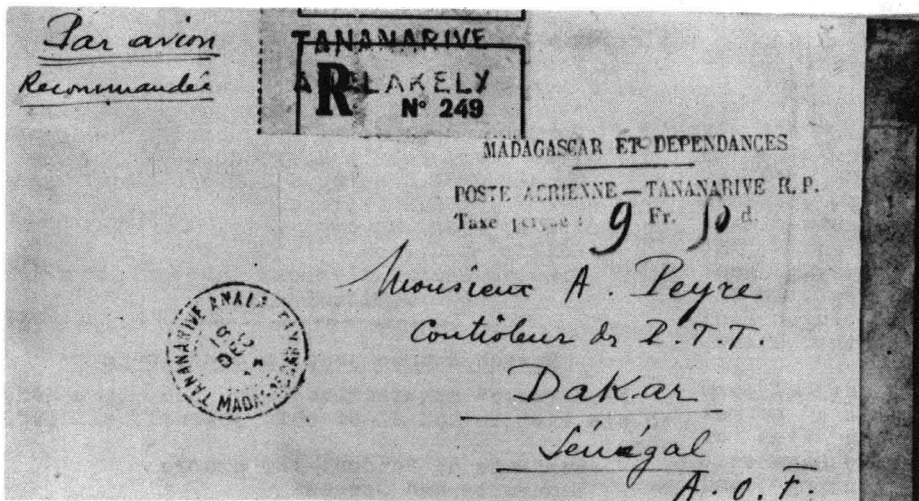 Par avion
Recommandée
TANANARIVE
R
N° 249
MADAGASCAR ET DEPENDANCES
POSTE AERIENNE — TANANARIVE R. P.
Taxe perçue : 9 Fr. 50 d.
Monsieur A. Peyre
Contrôleur des P.T.T.
Dakar
Sénégal
A. O. F.
TANANARIVE